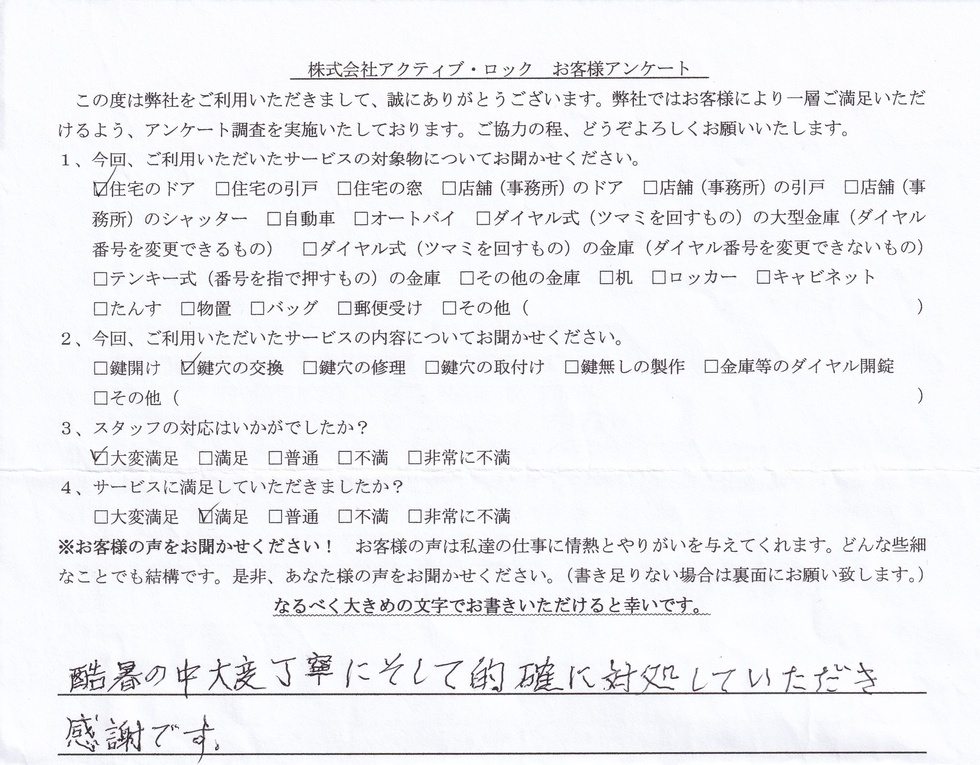 株式会社アクティブ・ロック　お客様アンケート
この度は弊社をご利用いただきまして、誠にありがとうございます。弊社ではお客様により一層ご満足いただ
けるよう、アンケート調査を実施いたしております。ご協力の程、どうぞよろしくお願いいたします。
１、今回、ご利用いただいたサービスの対象物についてお聞かせください。
☑住宅のドア　□住宅の引戸　□住宅の窓　□店舗（事務所）のドア　□店舗（事務所）の引戸　□店舗（事
務所）のシャッター　□自動車　□オートバイ　□ダイヤル式（ツマミを回すもの）の大型金庫（ダイヤル
番号を変更できるもの）　□ダイヤル式（ツマミを回すもの）の金庫（ダイヤル番号を変更できないもの）
□テンキー式（番号を指で押すもの）の金庫　□その他の金庫　□机　□ロッカー　□キャビネット
□たんす　□物置　□バッグ　□郵便受け　□その他（　　　　　　　　　　　　）
２、今回、ご利用いただいたサービスの内容についてお聞かせください。
□鍵開け　☑鍵穴の交換　□鍵穴の修理　□鍵穴の取付け　□鍵無しの製作　□金庫等のダイヤル開錠
□その他（　　　　　　　　　　　　）
３、スタッフの対応はいかがでしたか？
☑大変満足　□満足　□普通　□不満　□非常に不満
４、サービスに満足していただきましたか？
□大変満足　☑満足　□普通　□不満　□非常に不満
※お客様の声をお聞かせください！　お客様の声は私達の仕事に情熱とやりがいを与えてくれます。どんな些細
なことでも結構です。是非、あなた様の声をお聞かせください。（書き足りない場合は裏面にお願い致します。）
なるべく大きめの文字でお書きいただけると幸いです。
酷暑の中大変丁寧にそして的確に対処していただき
感謝です。